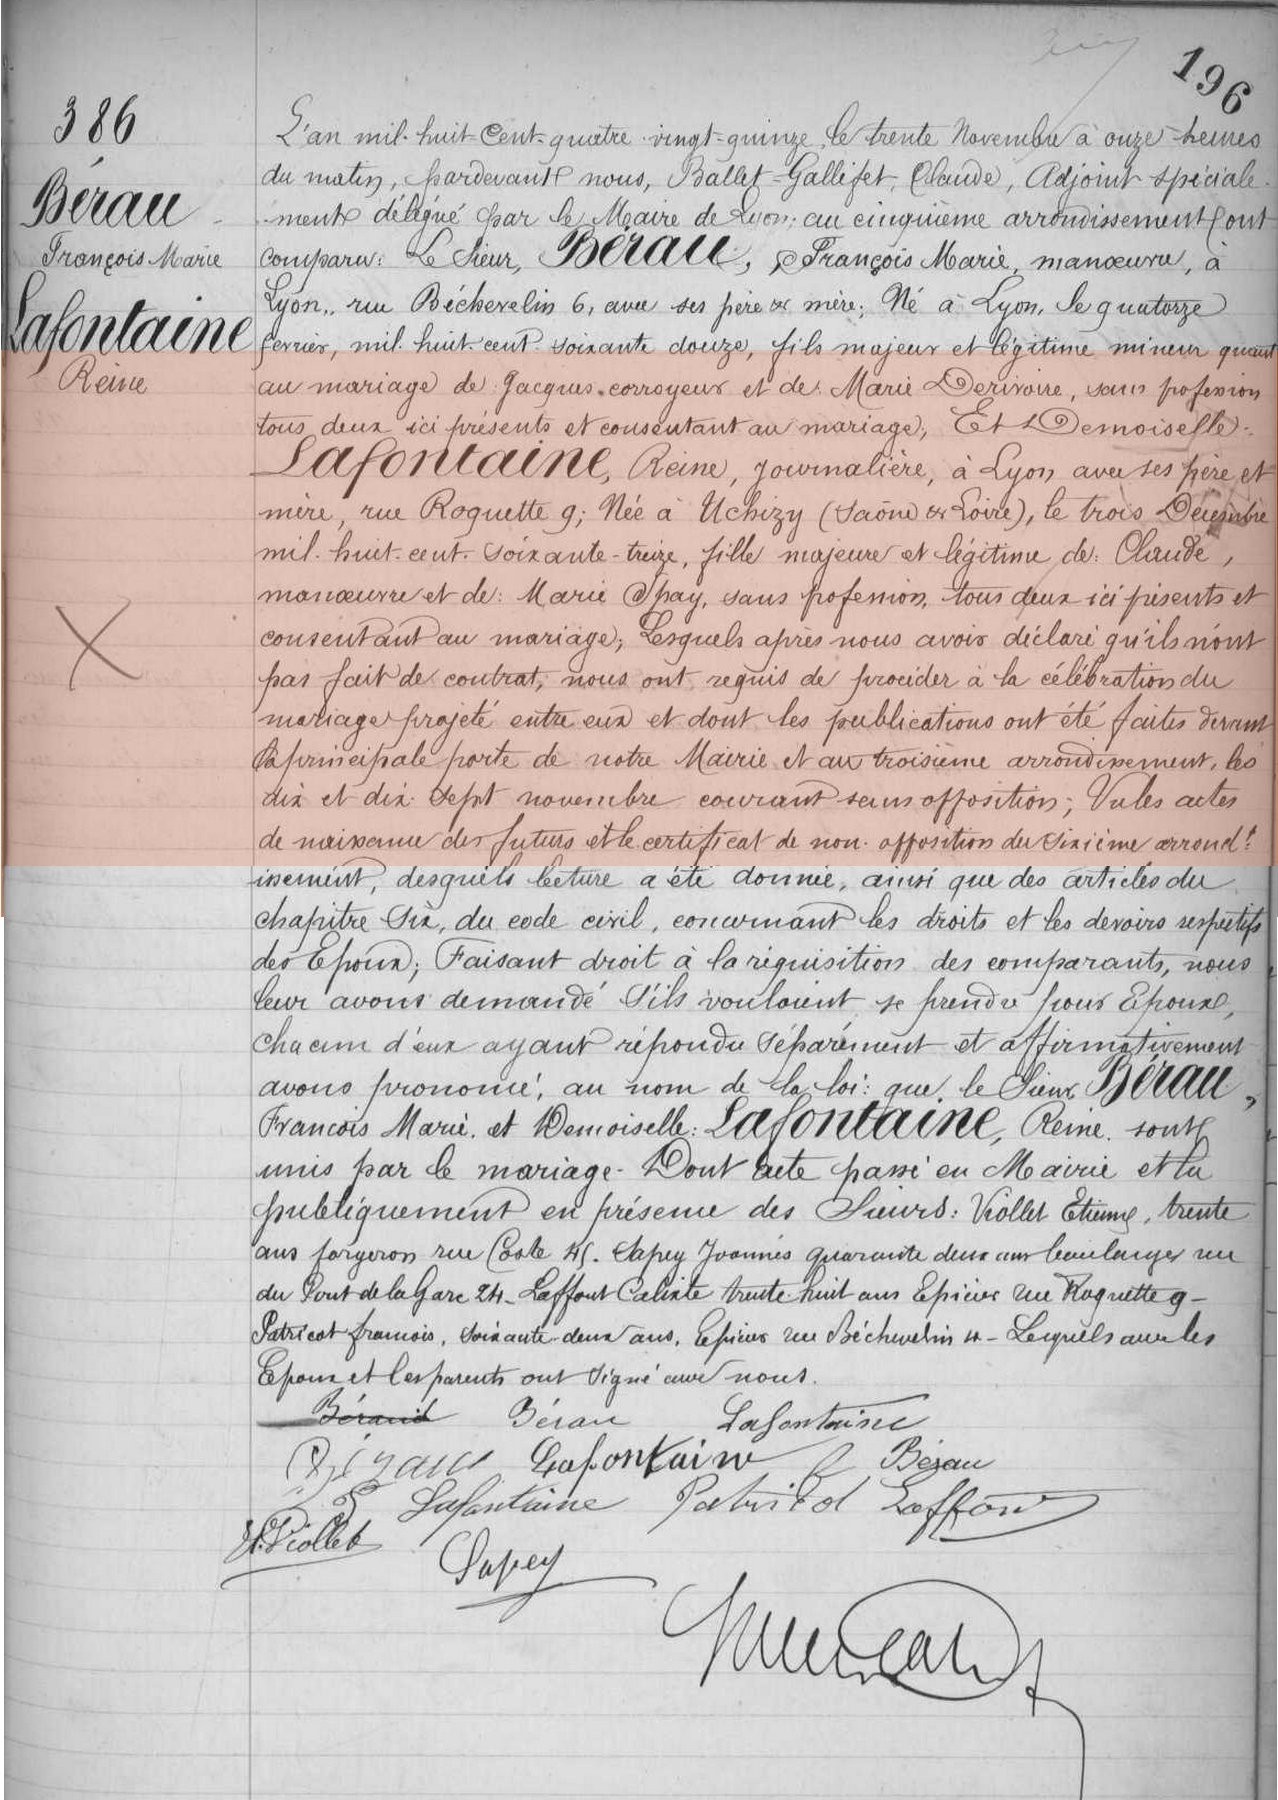 196
386
Bérau
François Marie
Lafontaine
Reine
L'an mil-huit-Cent-quatre-vingt-quinze, le trente Novembre à onze heures
du matin, pardevant nous, Ballet-Gallifet, Claude, Adjoint spéciale-
-ment délégué par le Maire de Lyon, au cinquième arrondissement, ont
comparu: Le Sieur, Bérau, François Marie, manœuvre, à
Lyon, rue Béchevelin 6, avec ses père & mère; Né à Lyon, le quatorze
février, mil-huit-cent-soixante douze, fils majeur et légitime mineur quant
au mariage de Jacques, corroyeur et de: Marie Derivoire, sans profession
tous deux ici présents et consentant au mariage, Et Demoiselle:
Lafontaine, Reine, journalière, à Lyon avec ses père et
mère, rue Roquette 9; Née à Uchizy (Saône & Loire), le trois Décembre
mil-huit-cent-soixante-treize, fille majeure et légitime de: Claude,
manœuvre et de: Marie Spay, sans profession, tous deux ici présents et
consentant au mariage; Lesquels après nous avoir déclaré qu'ils n'ont
pas fait de contrat, nous ont requis de procéder à la célébration du
mariage projeté entre eux et dont les publications ont été faites devant
la principale porte de notre Mairie et au troisième arrondissement, les
dix et dix-sept novembre courant sans opposition; Vu les actes
de naissance des futurs et le certificat de non-opposition du sixième arrondt
issement, desquels lecture a été donnée, ainsi que des articles du
chapitre Six, du code civil, concernant les droits et les devoirs respectifs
des Epoux; Faisant droit à la réquisition des comparants, nous
leur avons demandé s'ils vouloient se prendre pour Epoux,
chacun d'eux ayant répondu séparément et affirmativement
avons prononcé, au nom de la loi: que le Sieur Bérau,
François Marie, et Demoiselle: Lafontaine, Reine. sont
unis par le mariage. Dont acte passé en Mairie et lu
publiquement en présence des Sieurs: Viollet Etienne, trente
ans forgeron rue Coste 45. Sapey Joannès quarante deux ans boulanger rue
du Pont de la Gare 24. Laffont Calixte trente-huit ans Epicier rue Roquette 9-
Patricot françois, soixante-deux ans, Epicier rue Béchevelin 4- Lesquels avec les
Epoux et les parents ont signé avec nous.
Béraud Bérau Lafontaine
Bérau Lafontaine Bérau
Lafontaine Patricot Laffont
Et. Viollet
Sapey